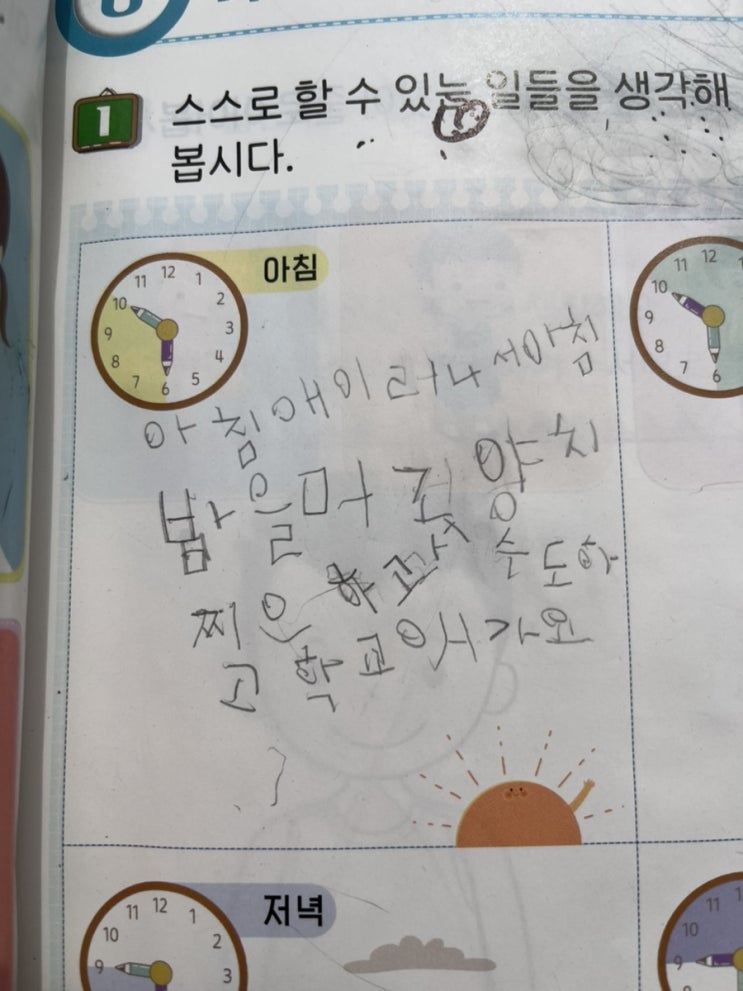 1 스스로 할 수 있는 일들을 생각해
봅시다.
아침
11 12 1
10 2
9 3
8 4
7 6 5
11 12
10
9
8
7 6
아침애이러나서아침
밥을머 양치
하고 수도하
학교 가요
저녁
11 12 1
10 2
9 3
11
10
9